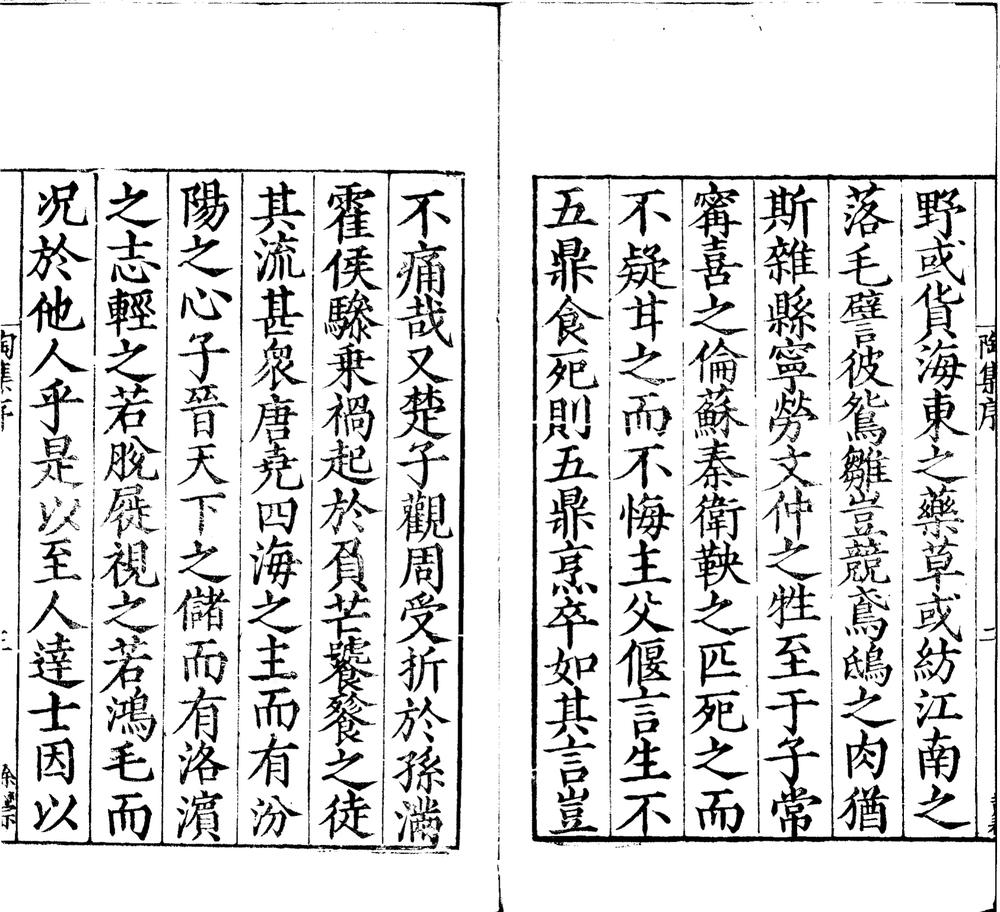 陶集序
野或貨海東之藥草或紡江南之
落毛譬彼鴛雛豈競鳶鴟之肉猶
斯雜縣寧勞文仲之牲至于子常
甯喜之倫蘇秦衛鞅之匹死之而
不疑甘之而不悔主父偃言生不
五鼎食死則五鼎烹卒如其言豈
不痛哉又楚子觀周受折於孫滿
霍侯驂乗禍起於負芒饕餮之徒
其流甚衆唐堯四海之主而有汾
陽之心子晉天下之儲而有洛濱
之志輕之若脫屣視之若鴻毛而
况於他人乎是以至人達士因以
陶集序
三